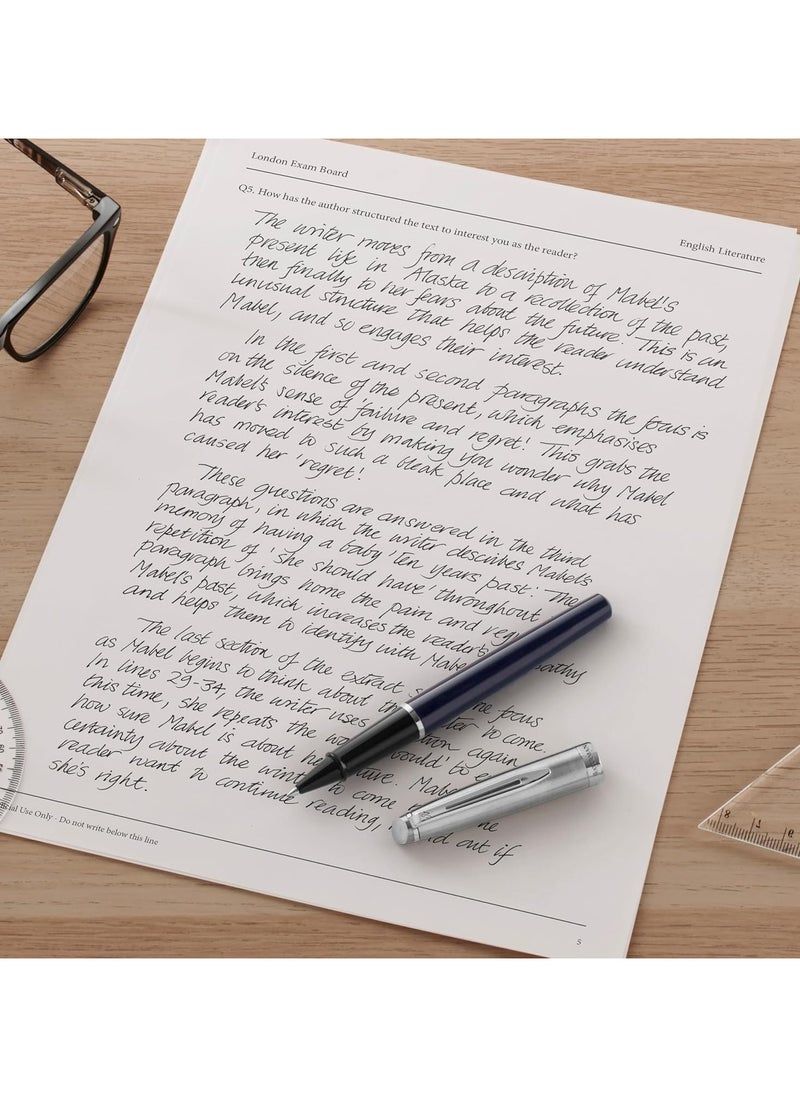 London Exam Board
English Literature
Q5. How has the author structured the text to interest you as the reader?
The writer moves from a description of Mabel's
present life in Alaska to a recollection of the past,
then finally to her fears about the future. This is an
unusual structure that helps the reader understand
Mabel, and so engages their interest.
In the first and second paragraphs the focus is
on the silence of the present, which emphasises
Mabel's sense of 'failure and regret! This grabs the
reader's interest by making you wonder why Mabel
has moved to such a bleak place and what has
caused her 'regret!
These questions are answered in the third
paragraph, in which the writer describes Mabel's
memory of having a baby 'ten years past.' The
repetition of 'she should have' throughout
paragraph brings home the pain and
Mabel's past, which increases the reader's
and helps them to identify with
The last section of the extract focus
as Mabel begins to think about to come.
In lines 29-34, the writer uses again
this time, she repeats the 'would' to
how sure Mabel is about
certainty about the to come
reader want to continue reading, out if
she's right.
Use Only - Do not write below this line
5
8
7